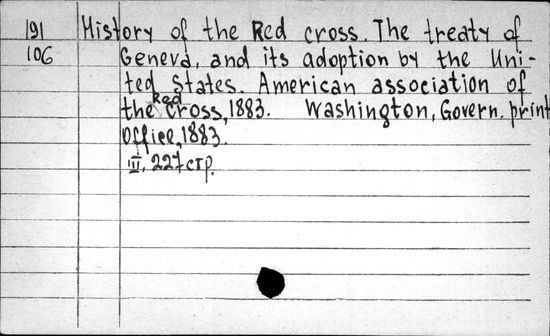 191 History of the Red cross. The treaty of
106 Geneva, and its adoption by the Uni-
ted States. American association of
the Red Cross, 1883. Washington, Govern. print
office, 1883.
III, 227 стр.